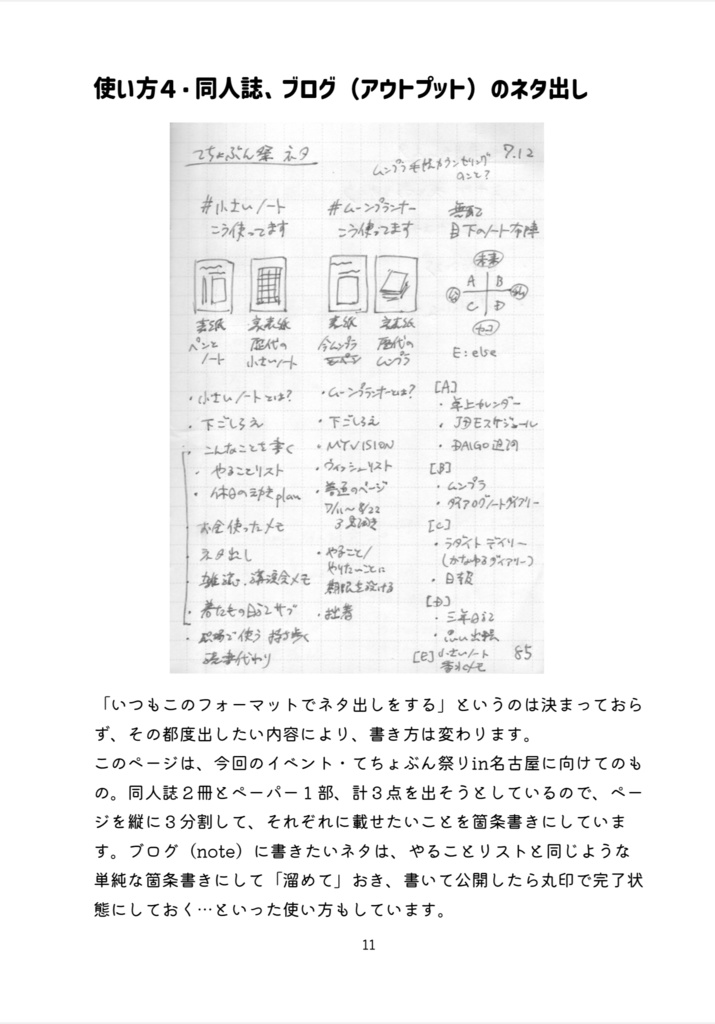 使い方４・同人誌、ブログ（アウトプット）のネタ出し
てちょぶん祭 ネタ
7.12
ムンプラ カウンセリング
のこと?
#小さいノート
こう使ってます
#ムーンプランナー
こう使ってます
無配
目下のノート布陣
未来
A B
C D
E:else
表紙
ペンと
ノート
裏表紙
歴代の
小さいノート
表紙
今ムンプラ
裏表紙
歴代の
ムンプラ
・小さいノートとは?
・下ごしらえ
・こんなことを書く
・やることリスト
・休日の plan
・お金使ったメモ
・ネタ出し
・雑誌、講演会メモ
・着たもの日記 サブ
・職場で使う 持ち歩く
・ムーンプランナーとは?
・下ごしらえ
・MYVISION
・ウィッシュリスト
・普通のページ
7/11〜8/22
3見開き
・やること/
やりたいことに
期限を設ける
・拙著
[A]
・卓上カレンダー
・スケジュール
・DAIGO
[B]
・ムンプラ
・ダイアログノートダイアリー
[C]
・ラダイト デイリー
(かなゆるダイアリー)
・日報
[D]
・三年日記
・思い出帳
[E] 小さいノート
85
「いつもこのフォーマットでネタ出しをする」というのは決まっておら
ず、その都度出したい内容により、書き方は変わります。
このページは、今回のイベント・てちょぶん祭りin名古屋に向けてのも
の。同人誌２冊とペーパー１部、計３点を出そうとしているので、ペー
ジを縦に３分割して、それぞれに載せたいことを箇条書きにしていま
す。ブログ（note）に書きたいネタは、やることリストと同じような
単純な箇条書きにして「溜めて」おき、書いて公開したら丸印で完了状
態にしておく…といった使い方もしています。
11